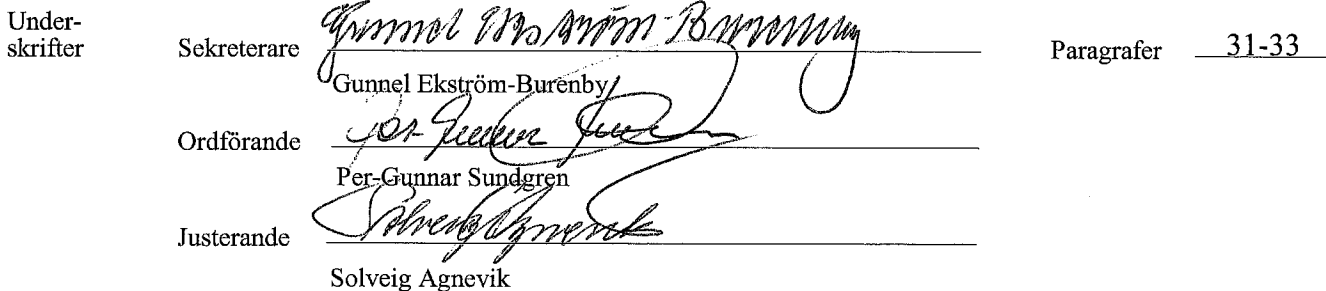 Under-
skrifter
Sekreterare Gunnel Ekström-Burenby Paragrafer 31-33
Gunnel Ekström-Burenby
Ordförande Per-Gunnar Sundgren
Per-Gunnar Sundgren
Justerande Solveig Agnevik
Solveig Agnevik